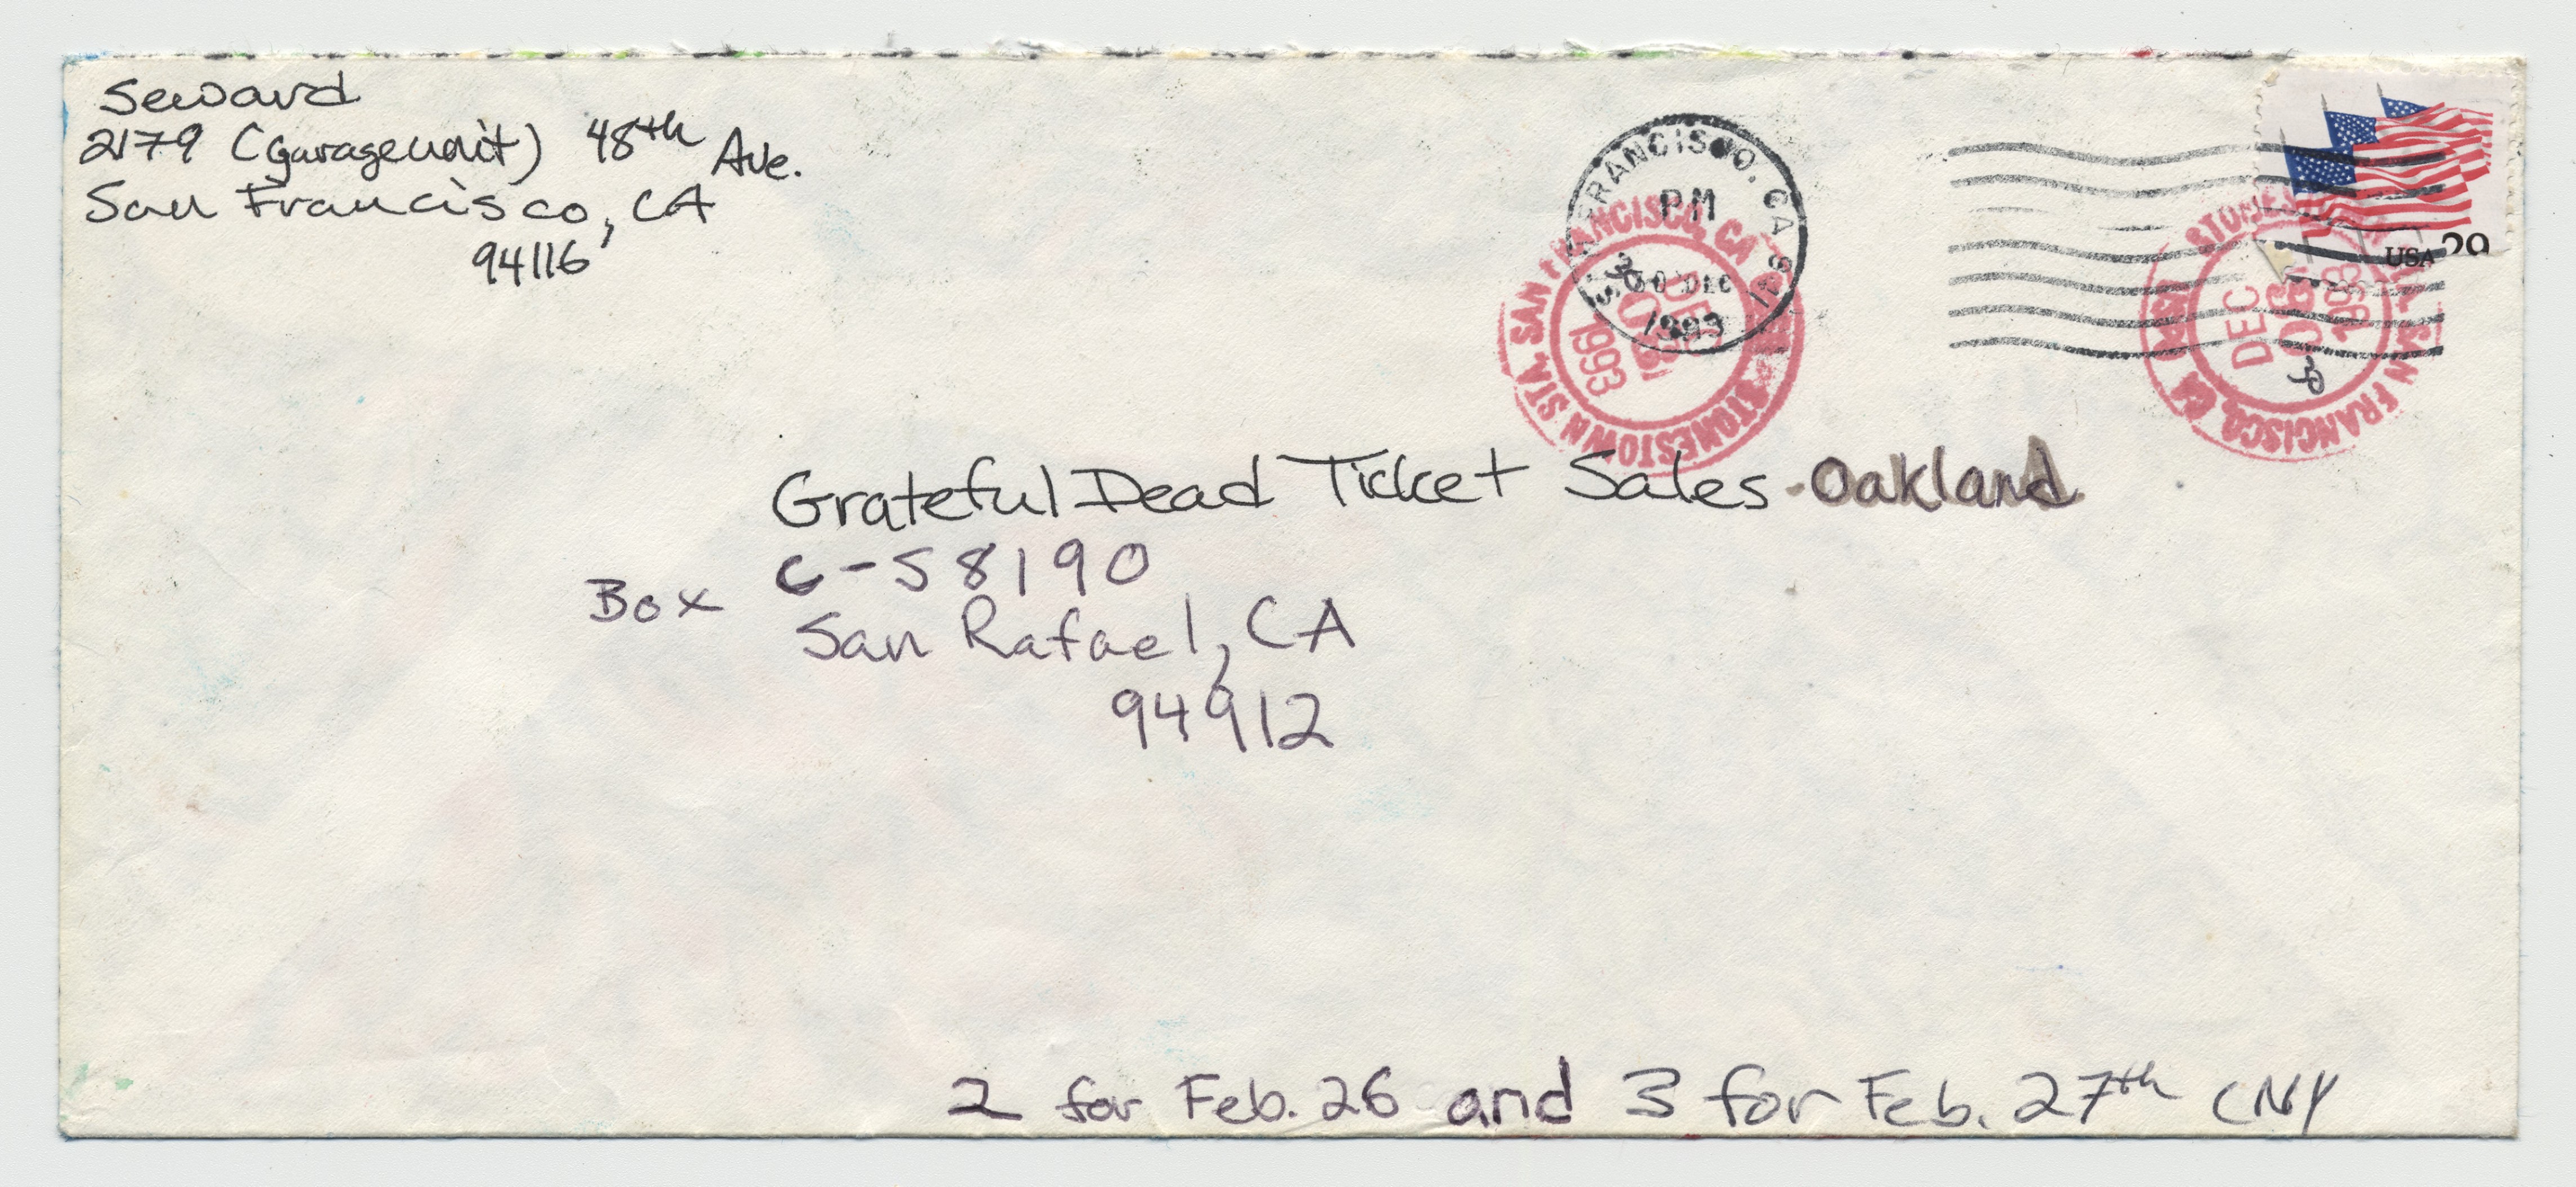 Seward
2179 (garage unit) 48th Ave.
San Francisco, CA
94116
SAN FRANCISCO, CA
PM
30 DEC
1993
STONESTOWN STA. SAN FRANCISCO, CA
DEC
30
1993
STONESTOWN STA. SAN FRANCISCO, CA
DEC
30
1993
USA 29
Grateful Dead Ticket Sales - Oakland
Box C-S8190
San Rafael, CA
94912
2 for Feb. 26 and 3 for Feb. 27th CNY